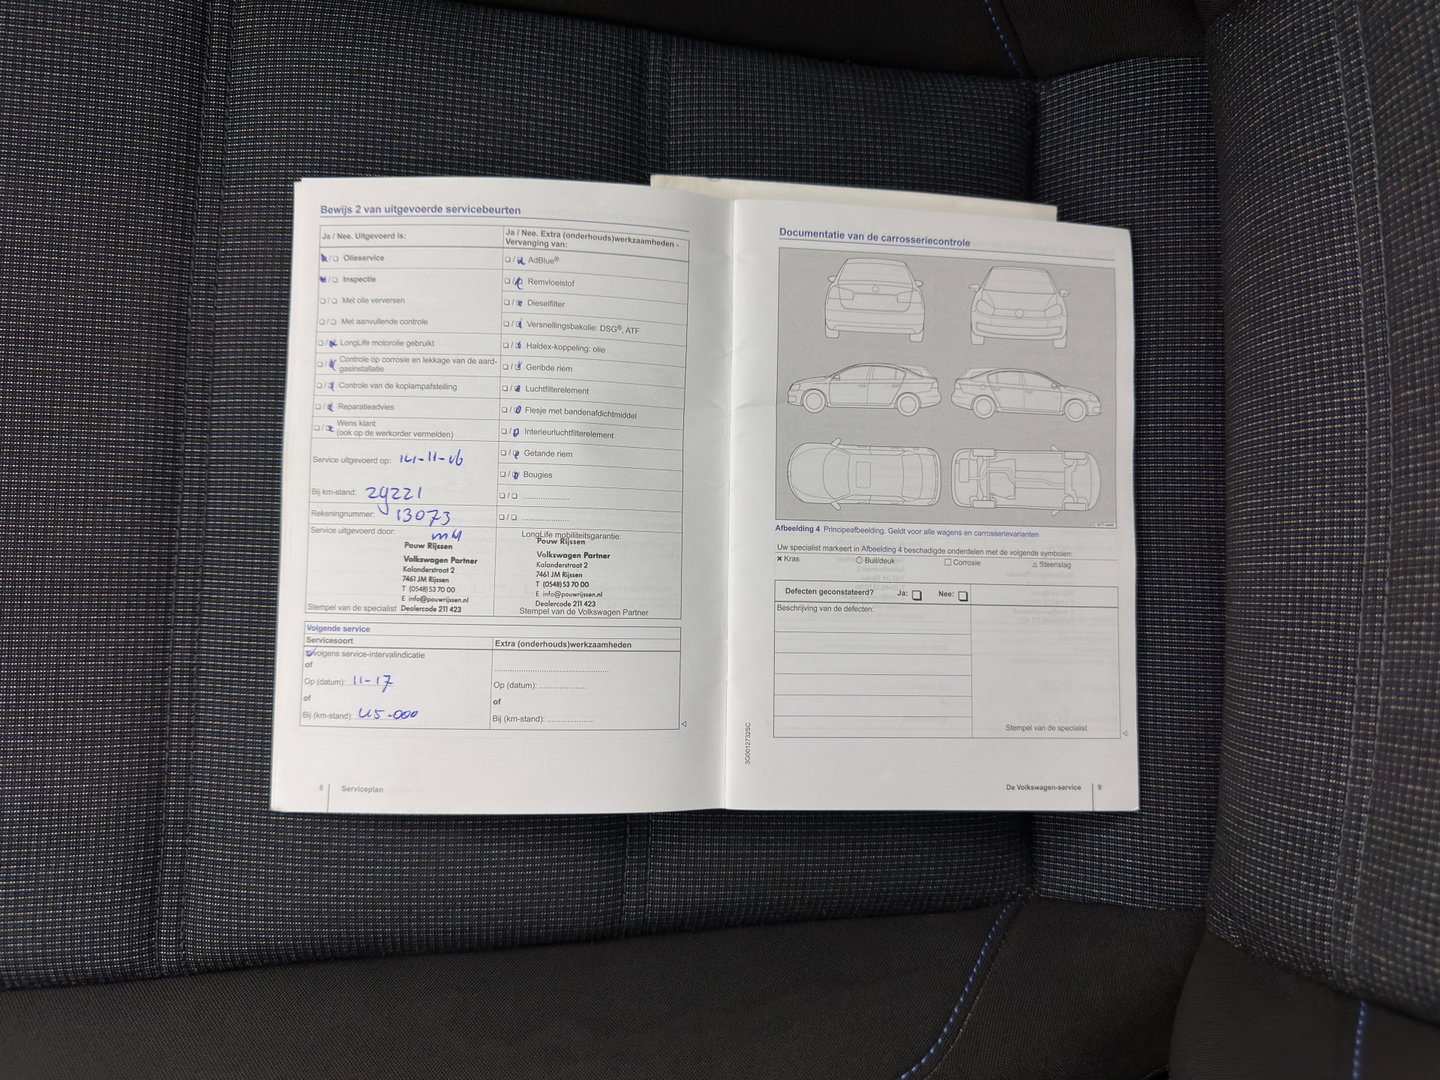 Bewijs 2 van uitgevoerde servicebeurten
Ja / Nee. Uitgevoerd is:
Olieservice
Inspectie
Met olie verversen
Met aanvullende controle
LongLife motorolie gebruikt
Controle op corrosie en lekkage van de aard-
gasinstallatie
Controle van de koplampafstelling
Reparatieadvies
Wens klant
(ook op de werkorder vermelden)
Service uitgevoerd op: 14-11-16
Bij km-stand: 29221
Rekeningnummer: 13073
Service uitgevoerd door:
Pouw Rijssen
Volkswagen Partner
Kalanderstraat 2
7461 JM Rijssen
T (0548) 53 70 00
E info@pouwrijssen.nl
Stempel van de specialist Dealercode 211 423
Ja / Nee. Extra (onderhouds)werkzaamheden -
Vervanging van:
AdBlue®
Remvloeistof
Dieselfilter
Versnellingsbakolie: DSG®, ATF
Haldex-koppeling: olie
Geribde riem
Luchtfilterelement
Flesje met bandenafdichtmiddel
Interieurluchtfilterelement
Getande riem
Bougies
LongLife mobiliteitsgarantie:
Pouw Rijssen
Volkswagen Partner
Kalanderstraat 2
7461 JM Rijssen
T (0548) 53 70 00
E info@pouwrijssen.nl
Dealercode 211 423
Stempel van de Volkswagen Partner
Volgende service
Servicesoort
volgens service-intervalindicatie
of
Op (datum): 11-17
of
Bij (km-stand): 45.000
Extra (onderhouds)werkzaamheden
Op (datum): ....................
of
Bij (km-stand): ....................
8 Serviceplan
Documentatie van de carrosseriecontrole
Afbeelding 4 Principeafbeelding. Geldt voor alle wagens en carrosserievarianten
Uw specialist markeert in Afbeelding 4 beschadigde onderdelen met de volgende symbolen:
✕ Kras ○ Buil/deuk □ Corrosie △ Steenslag
Defecten geconstateerd? Ja: □ Nee: □
Beschrijving van de defecten:
Stempel van de specialist
3G0012732SC
De Volkswagen-service 9